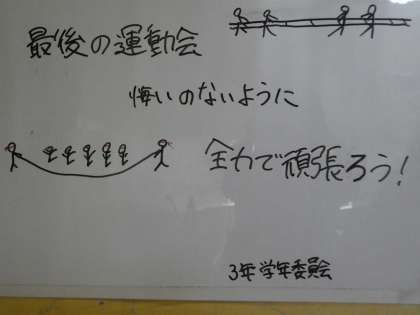 最後の運動会
悔いのないように
全力で頑張ろう!
3年学年委員会